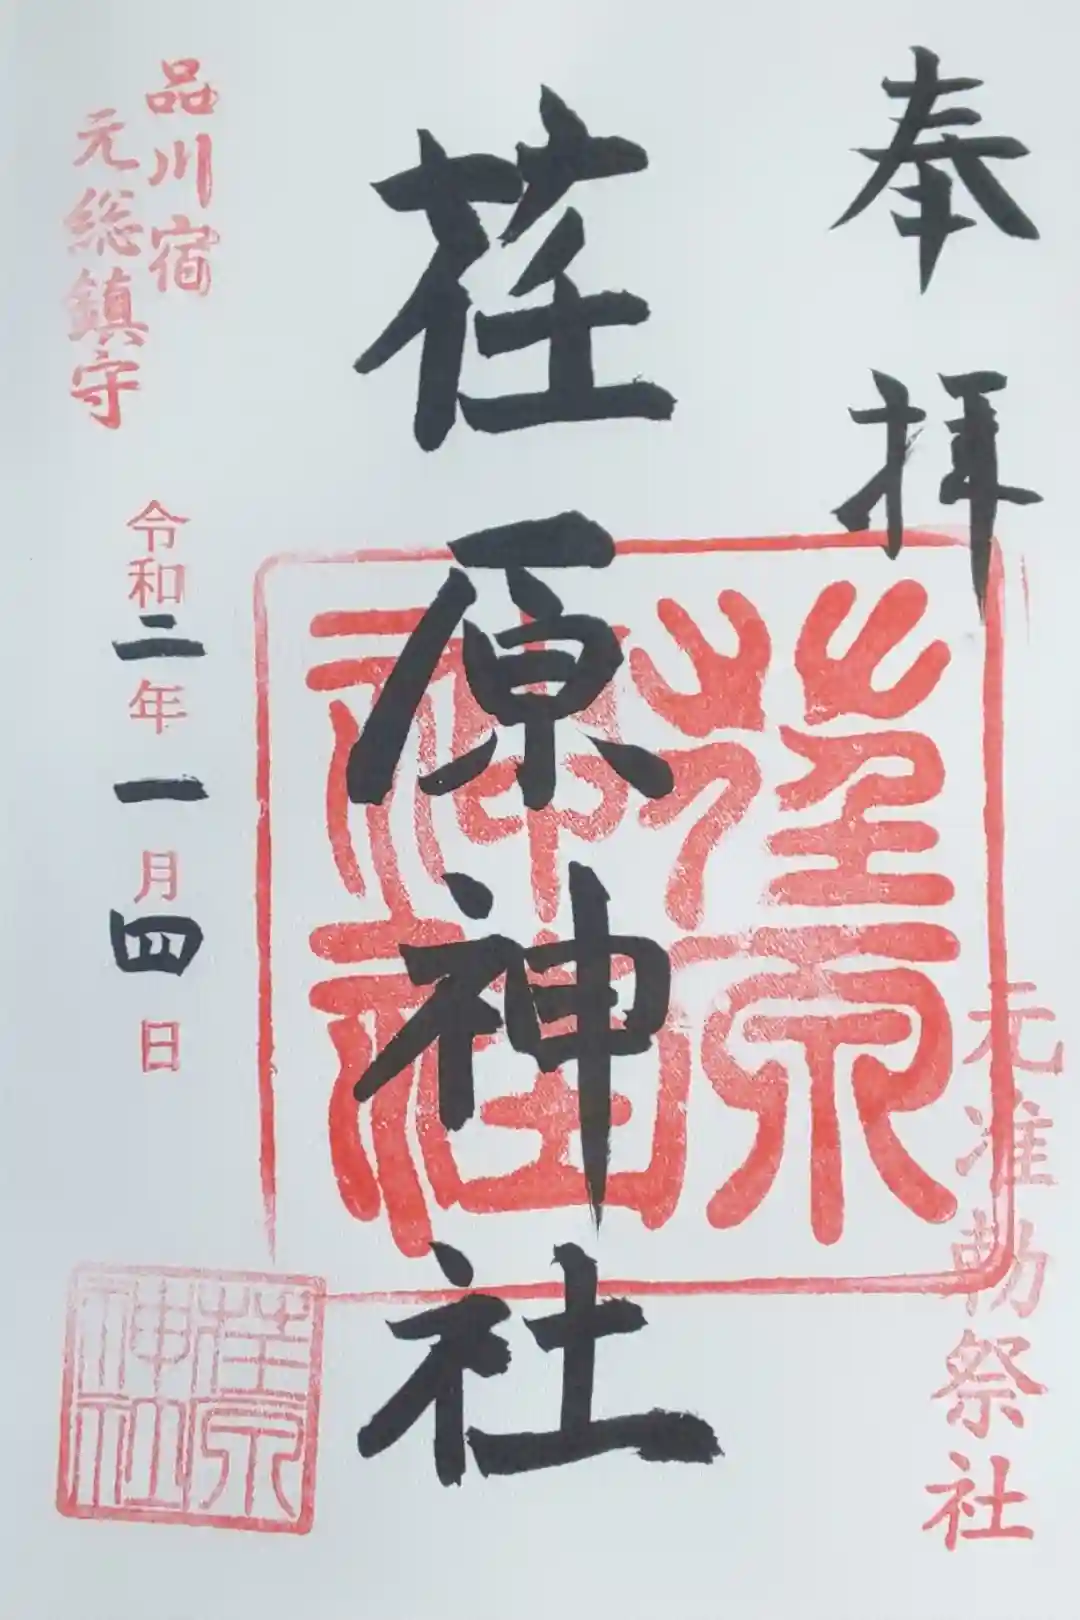 奉拝
元准勅祭社
荏原神社
荏原神社
品川宿
元総鎮守
令和二年一月四日
荏原神社